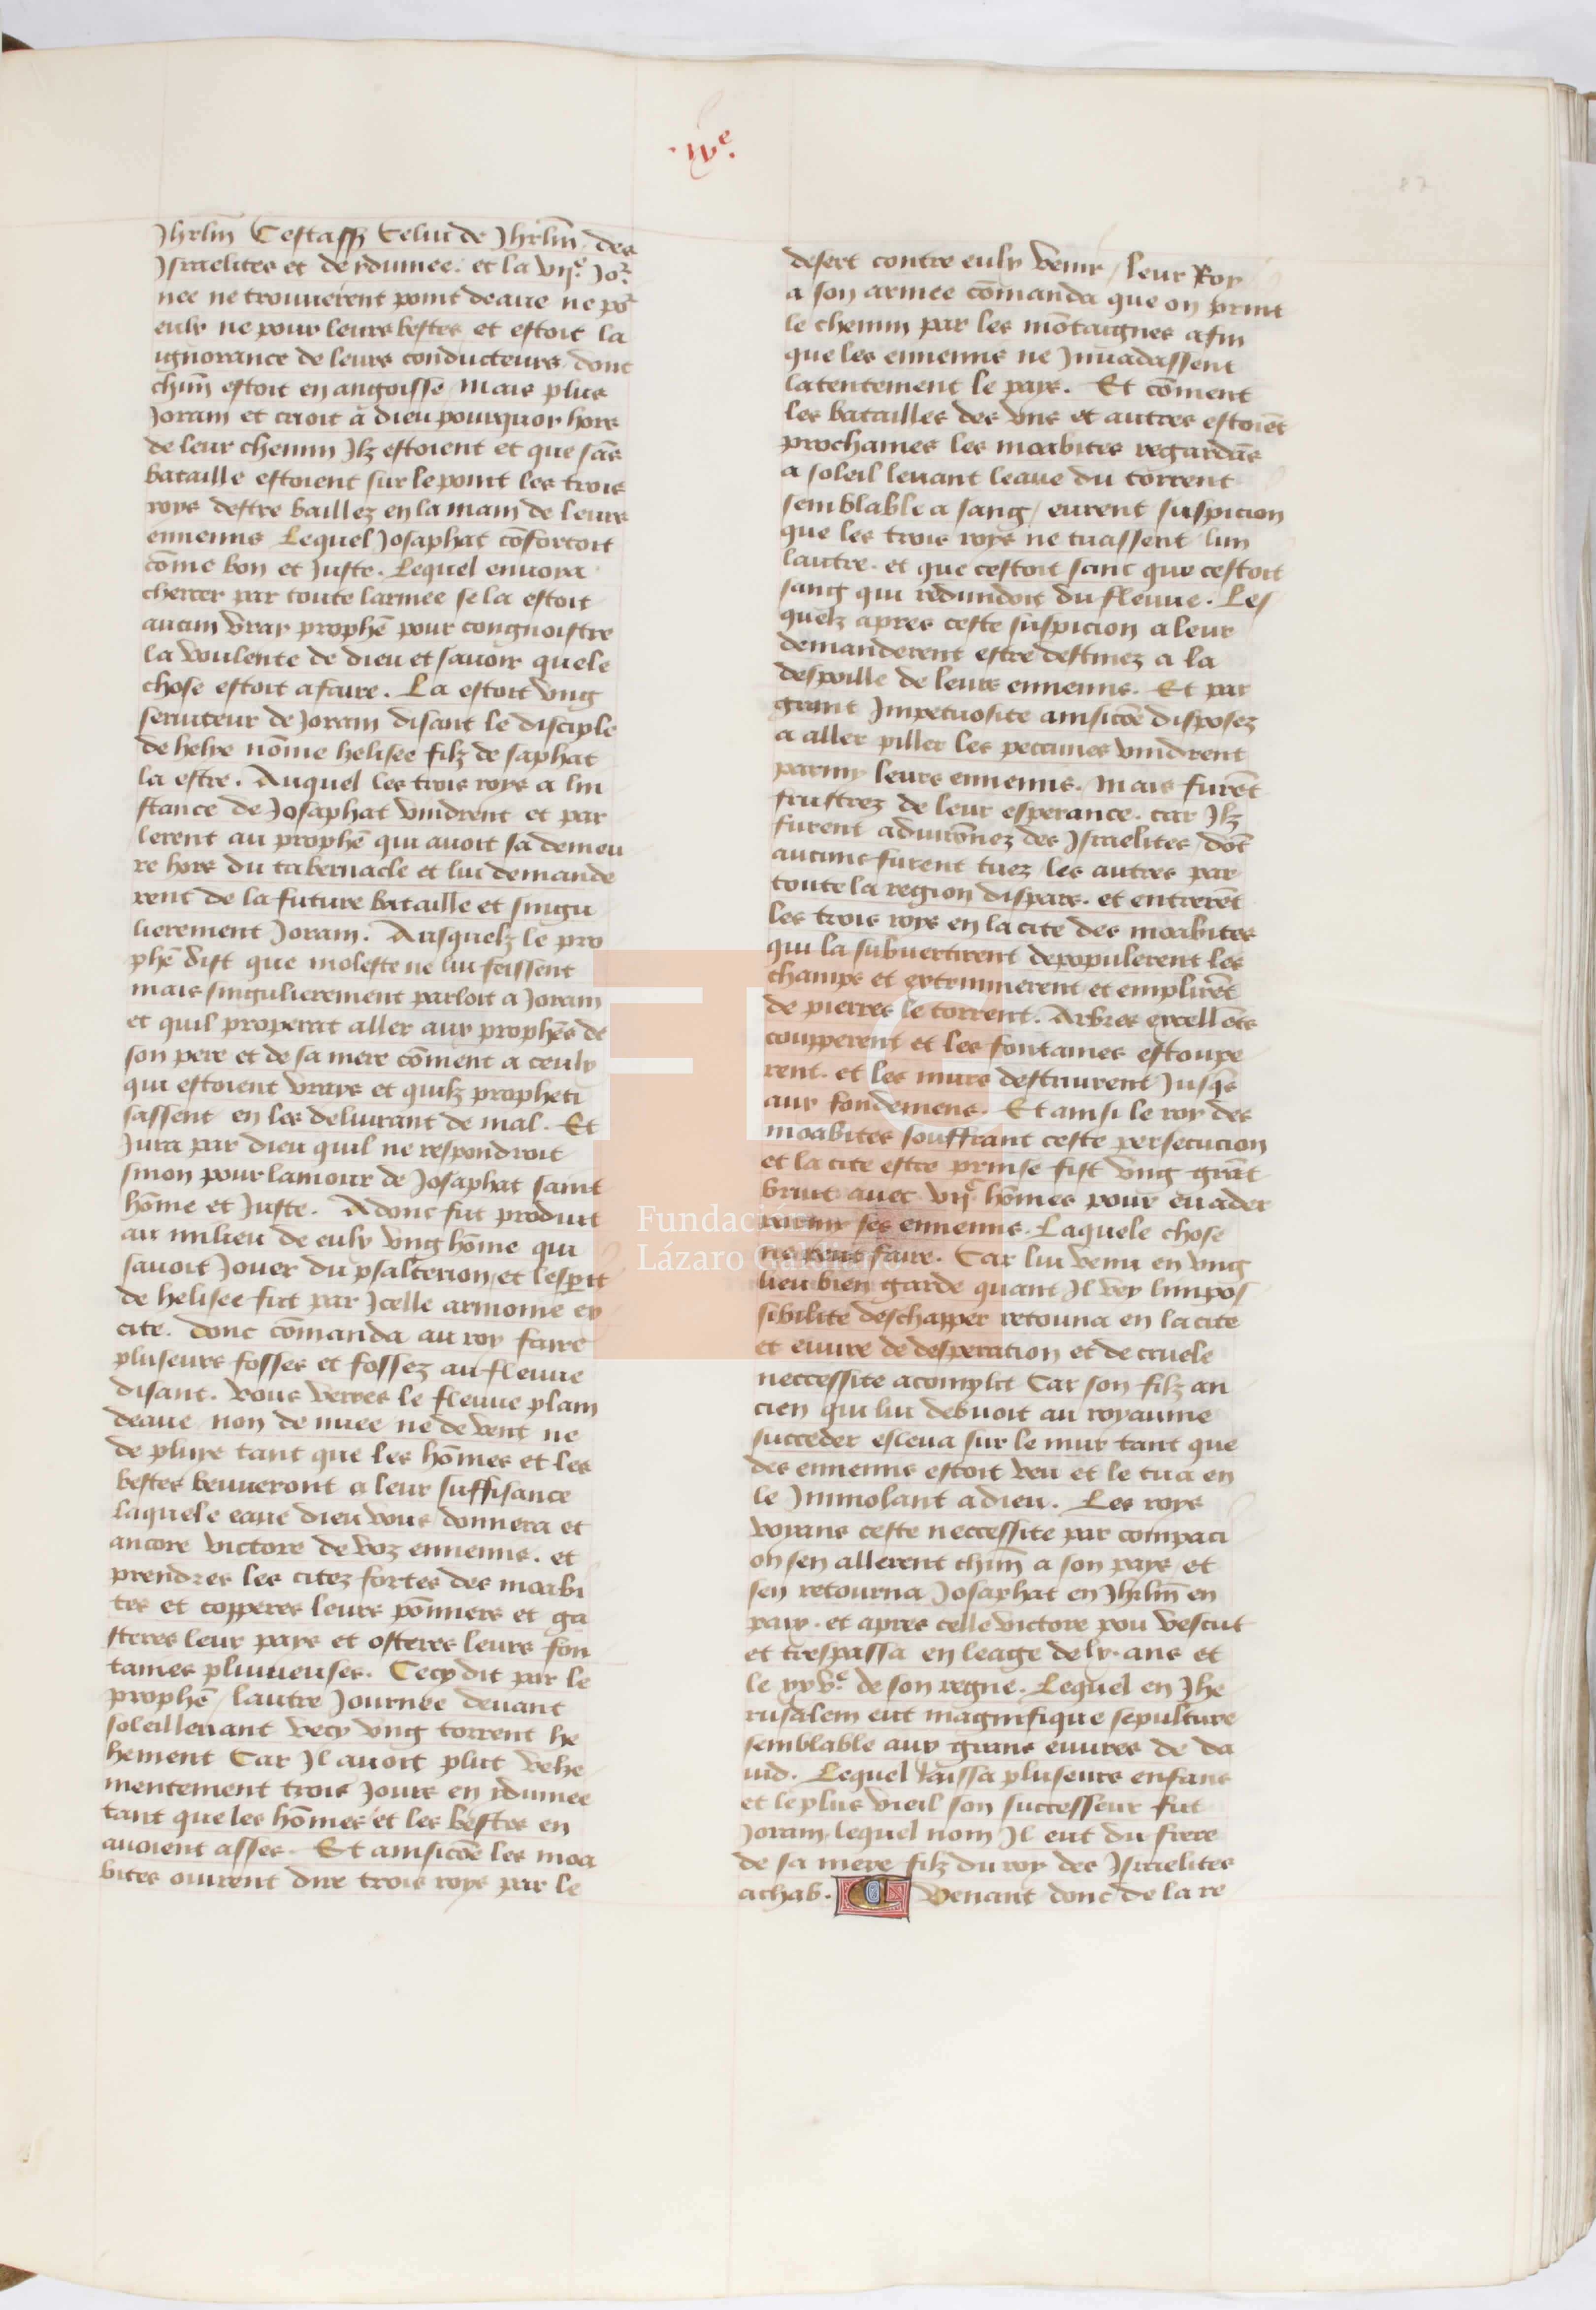 .iiii.e
87
Jhrlm̄ Cestassȝ Celui de Jhrlm̄ des
Israelites et de ydumee. et la vije. Jor
nee ne trouuerent point deaue ne pō
eulx ne pour leurs bestes et estoit la
ygnorance de leurs conducteurs, dont
chūn estoit en angoisse, mais plus
Joram et crioit a dieu pourquoy hors
de leur chemin Ilz estoient et que sās
bataille estoient sur le point les trois
roys destre baillez en la main de leurs
ennemis Lequel Josaphat cōfortoit
cōme bon et Juste. Lequel enuoya
chercer par toute larmee se la estoit
aucun vray prophē pour congnoistre
la voulente de dieu et sauoir quele
chose estoit a faire. La estoit vng
seruiteur de Joram disant le disciple
de helye nōme helisee filz de saphat
la estre. Auquel les trois roys a lin
stance de Josaphat vindrent et par
lerent au prophē qui auoit sa demeu
re hors du tabernacle et lui demande
rent de la future bataille et singu
lierement Joram. Ausquelz le pro
phē dist que moleste ne lui feissent
mais singulierement parloit a Joram
et quil properat aller aux prophēs de
son pere et de sa mere cōment a ceulx
qui estoient vrays et quilz propheti
sassent en les deliurant de mal. Et
Jura par dieu quil ne respondroit
sinon pour lamour de Josaphat saint
hōme et Juste. Adonc fut produit
au milieu de eulx vng hōme qui
sauoit Jouer du psalterion, et lesp̄it
de helisee fut par Icelle armonie ex
cite. donc cōmanda au roy faire
pluseurs fosses et fossez au fleuue
disant. vous verres le fleuue plain
deaue non de nuee ne de vent ne
de pluye tant que les hōmes et les
bestes beuueront a leur suffisance
laquele eaue dieu vous donnera et
ancore victore de voz ennemis. et
prendres les citez fortes des moabi
tes et copperes leurs pōmiers et ga
steres leur pays et osteres leurs fon
taines pluuieuses. Cecy dit par le
prophē, lautre Journee deuant
soleil leuant vecy vng torrent he
hement Car Il auoit plut vehe
mentement trois Jours en ydumee
tant que les hōmes et les bestes en
auoient asses. Et ainsicōe les moa
bites ouirent dire trois roys par le
desert contre eulx venir, leur Roy
a son armee cōmanda que on print
le chemin par les mōtaignes afin
que les ennemis ne Inuadassent
latentement le pays. Et cōment
les batailles des vns et autres estoiēt
prochaines les moabites regardās
a soleil leuant leaue du torrent
semblable a sang, eurent suspicion
que les trois roys ne tuassent lun
lautre. et que cestoit sanc que cestoit
sang qui redundoit du fleuue. Les
quelz apres ceste suspicion a leur
demanderent estre destinez a la
despoille de leurs ennemis. Et par
grant Impetuosite ainsicōe disposez
a aller piller les pecunes vindrent
parmy leurs ennemis. mais furēt
frustrez de leur esperance. car Ilz
furent aduirōnez des Israelites, dōt
aucuns furent tuez les autres par
toute la region dispars. et entrerēt
les trois roys en la cite des moabites
qui la subuertirent depopulerent les
champs et exterminerent et emplirēt
de pierres le torrent. Arbres excellēts
coupperent et les fontaines estoupe
rent. et les murs destruirent Jusqs̄
aux fondemens. Et ainsi le roy des
moabites souffrant ceste persecution
et la cite estre prinse fist vng grāt
bruit auec vijc hōmes pour euader
parmy ses ennemis. Laquele chose
ne peut faire. Car lui venu en vng
lieu bien garde quant Il vey limpos
sibilite deschapper retourna en la cite
et euure de desperation et de cruele
neccessite acomplit Car son filz an
cien qui lui debuoit au royaume
succeder esleua sur le mur tant que
des ennemis estoit veu et le tua en
le Immolant a dieu. Les roys
voyans ceste neccessite par compaci
on sen allerent chūn a son pays et
sen retourna Josaphat en Jhrlm̄ en
paix. et apres celle victore pou vescut
et trespassa en leage de lx. ans et
le xxve. de son regne. Lequel en Jhe
rusalem eut magnifique sepulture
semblable aux grans euures de da
uid. Lequel laissa pluseurs enfans
et le plus vieil son successeur fut
Joram, lequel nom Il eut du frere
de sa mere filz du roy des Israelites
achab. C Venant donc de la re
Fundación
Lázaro Galdiano